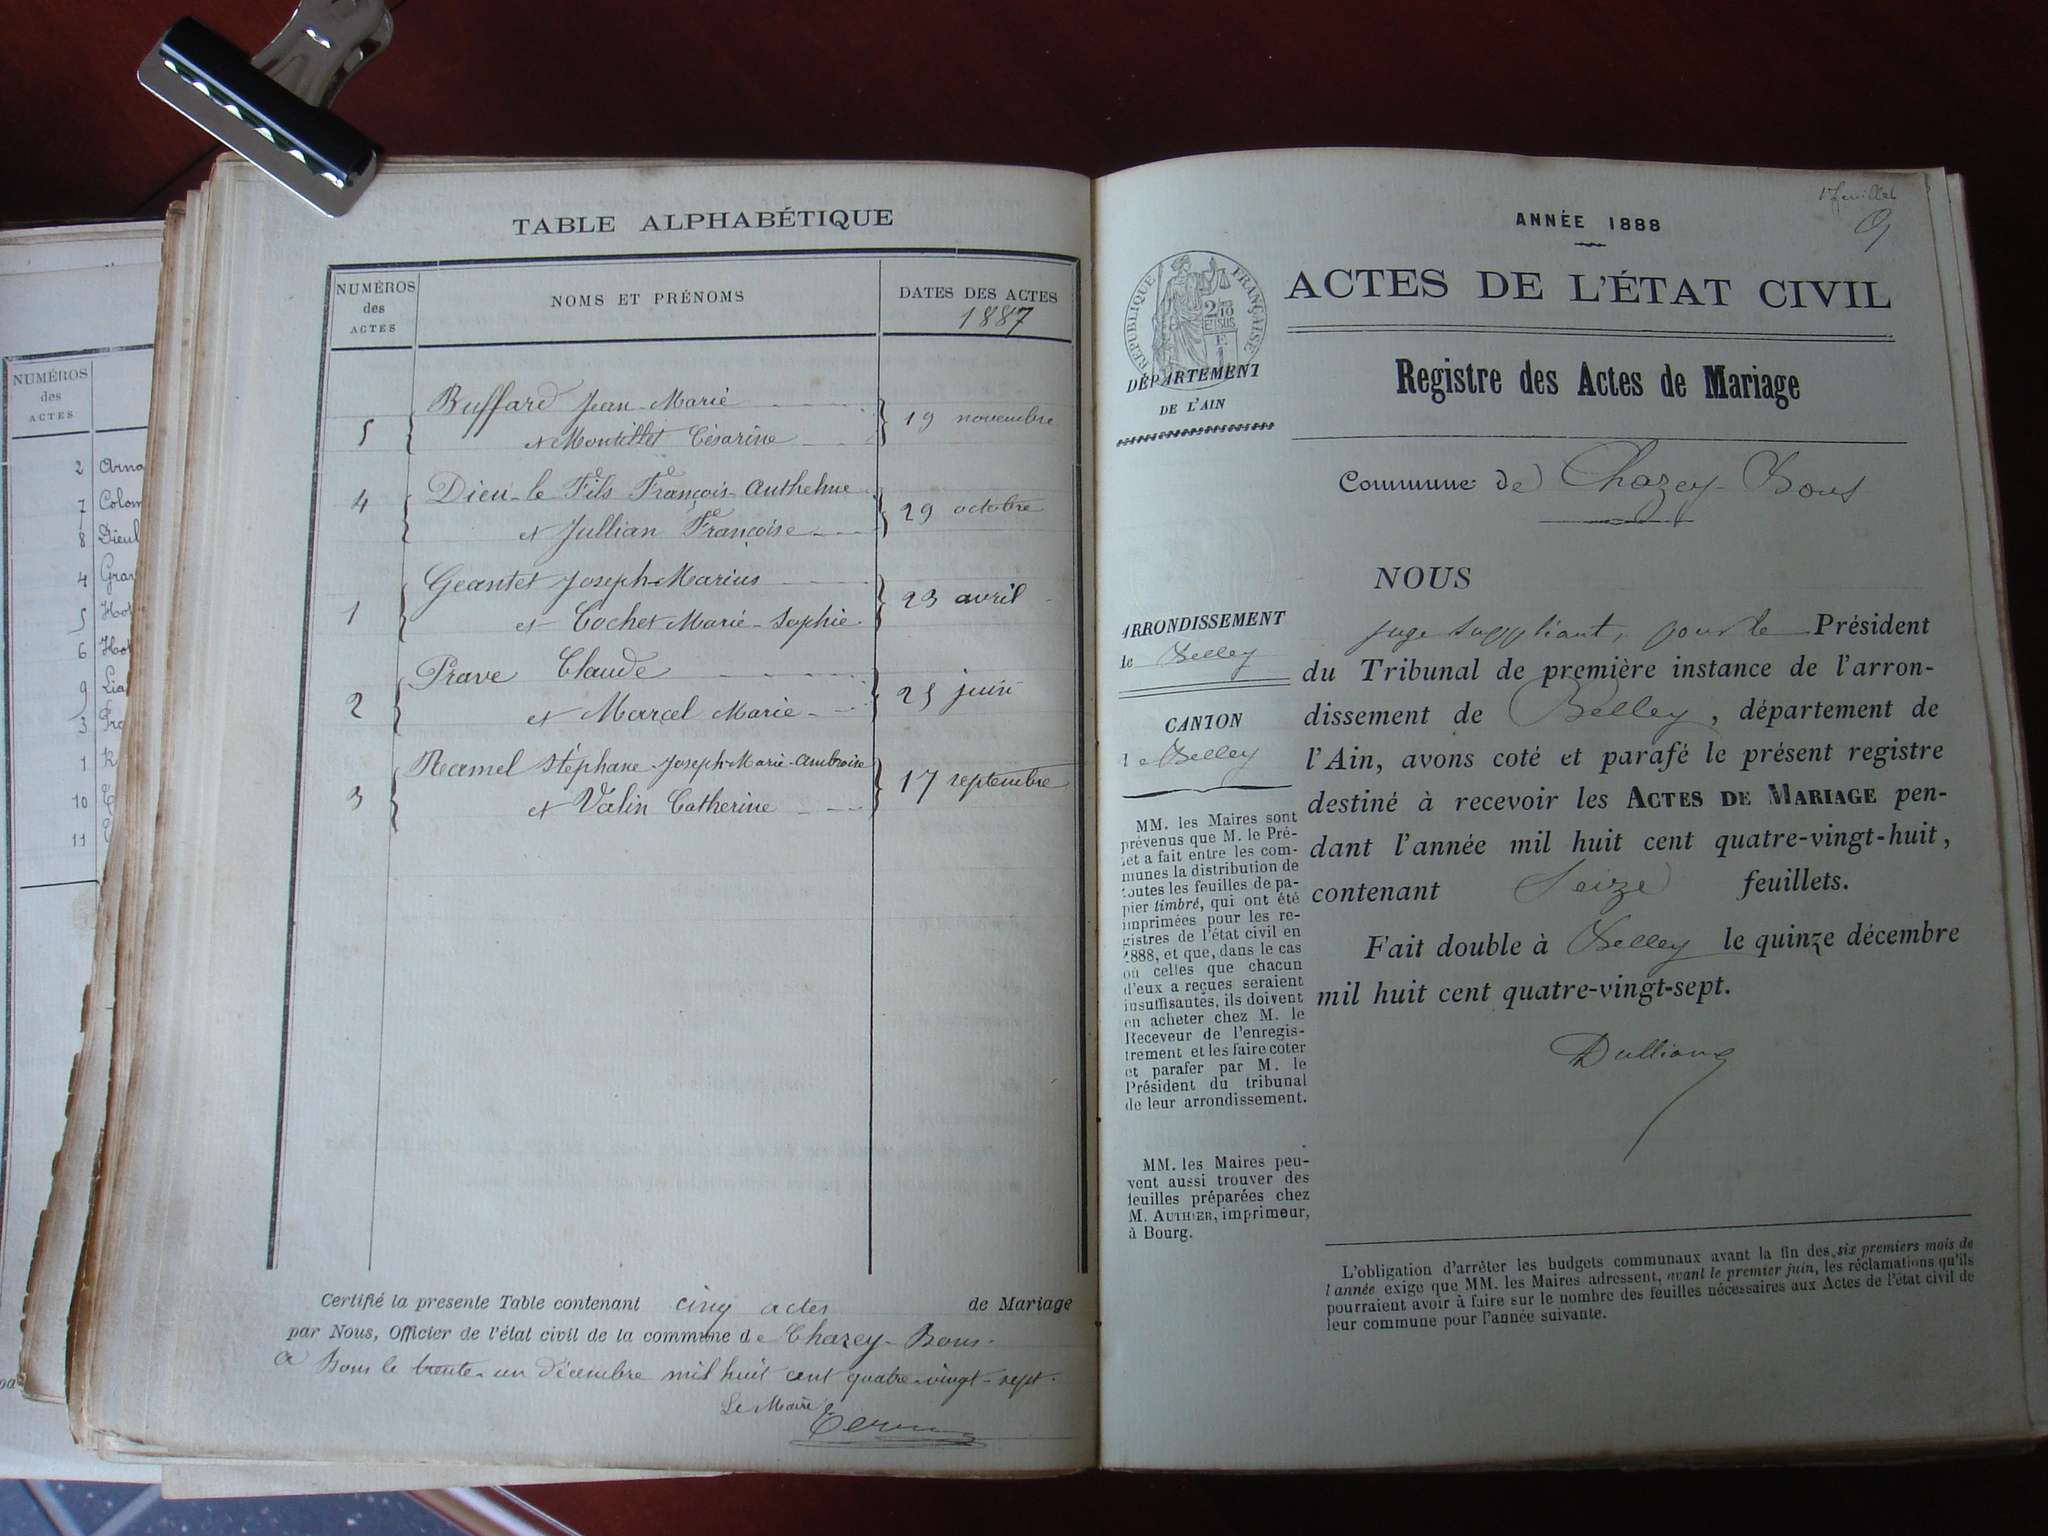 NUMÉROS
des
ACTES
2 Arna
7 Colom
8 Dieul
4 Gran
5 Hot
6 Hot
9 Lia
3 Pra
1 R
10
11
TABLE ALPHABÉTIQUE
NUMÉROS
des
ACTES
NOMS ET PRÉNOMS
DATES DES ACTES
1887
Buffard Jean-Marie
5 et Montillet Césarine 19 novembre
Dieu-le Fils François-Anthelme
4 et Jullian Françoise 29 octobre
Geantet Joseph-Marius
1 et Cochet Marie-Sophie 23 avril
Prave Claude
2 et Marcel Marie 25 juin
Ramel Stéphane-Joseph-Marie-Ambroise
3 et Valin Catherine 17 septembre
Certifié la presente Table contenant cinq actes de Mariage
par Nous, Officier de l'état civil de la commune de Chazey-Bons.
A Bons le trente-un décembre mil huit cent quatre-vingt-sept.
Le Maire
1er feuillet
ANNÉE 1888
ACTES DE L'ÉTAT CIVIL
RÉPUBLIQUE FRANÇAISE
2/10
ET SUS
DÉPARTEMENT
DE L'AIN
Registre des Actes de Mariage
Commune de Chazey-Bons
ARRONDISSEMENT
de Belley
CANTON
de Belley
MM. les Maires sont
prévenus que M. le Pré-
fet a fait entre les com-
munes la distribution de
toutes les feuilles de pa-
pier timbré, qui ont été
imprimées pour les re-
gistres de l'état civil en
1888, et que, dans le cas
où celles que chacun
d'eux a reçues seraient
insuffisantes, ils doivent
en acheter chez M. le
Receveur de l'enregis-
trement et les faire coter
et parafer par M. le
Président du tribunal
de leur arrondissement.
MM. les Maires peu-
vent aussi trouver des
feuilles préparées chez
M. AUTHIER, imprimeur,
à Bourg.
NOUS
juge suppléant, pour le Président
du Tribunal de première instance de l'arron-
dissement de Belley, département de
l'Ain, avons coté et parafé le présent registre
destiné à recevoir les ACTES DE MARIAGE pen-
dant l'année mil huit cent quatre-vingt-huit,
contenant Seize feuillets.
Fait double à Belley le quinze décembre
mil huit cent quatre-vingt-sept.
L'obligation d'arrêter les budgets communaux avant la fin des six premiers mois de
l'année exige que MM. les Maires adressent, avant le premier juin, les réclamations qu'ils
pourraient avoir à faire sur le nombre des feuilles nécessaires aux Actes de l'état civil de
leur commune pour l'année suivante.